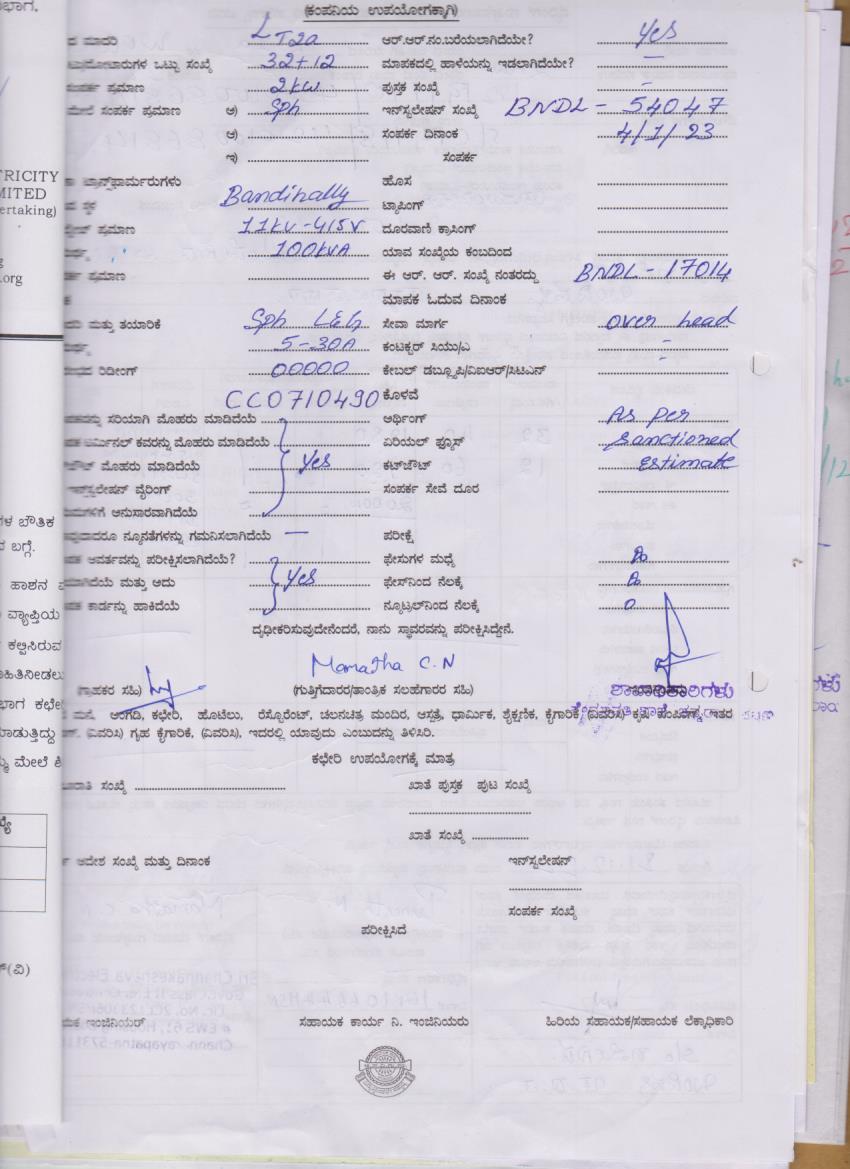 (ಕಂಪನಿಯ ಉಪಯೋಗಕ್ಕಾಗಿ)
ದ ಮಾದರಿ LT2a ಆರ್.ಆರ್.ನಂ.ಬರೆಯಲಾಗಿದೆಯೇ? Yes
ಒಟ್ಟು ಸಂಖ್ಯೆ 32+12 ಮಾಪಕದಲ್ಲಿ ಹಾಳೆಯನ್ನು ಇಡಲಾಗಿದೆಯೇ? —
ಸಂಪರ್ಕ ಪ್ರಮಾಣ 2kw ಪುಸ್ತಕ ಸಂಖ್ಯೆ -
ಮೇಲೆ ಸಂಪರ್ಕ ಪ್ರಮಾಣ ಅ) Sph ಇನ್‌ಸ್ಟಲೇಷನ್ ಸಂಖ್ಯೆ BNDL - 54047
ಆ) ಸಂಪರ್ಕ ದಿನಾಂಕ 4/1/23
ಇ) ಸಂಪರ್ಕ
TRICITY
MITED
ertaking)
ಟ್ರಾನ್ಸ್‌ಫಾರ್ಮರುಗಳು ಹೊಸ
ಸ್ಥಳ Bandihally ಟ್ಯಾಪಿಂಗ್
ಪ್ರಮಾಣ 11kv-415v ದೂರವಾಣಿ ಕ್ರಾಸಿಂಗ್
100kvA ಯಾವ ಸಂಖ್ಯೆಯ ಕಂಬದಿಂದ
.org
ಪ್ರಮಾಣ ಈ ಆರ್. ಆರ್. ಸಂಖ್ಯೆ ನಂತರದ್ದು BNDL - 17014
ಮಾಪಕ ಓದುವ ದಿನಾಂಕ
ಮತ್ತು ತಯಾರಿಕೆ Sph L&G ಸೇವಾ ಮಾರ್ಗ over head
5-30A ಕಂಟಕ್ಟರ್ ಸಿಯು/ಎ -
ರಿಡೀಂಗ್ 00000 ಕೇಬಲ್ ಡಬ್ಲ್ಯೂಪಿ/ವಿಐಆರ್/ಸಿಟಿಎನ್ -
CC0710490 ಕೊಳವೆ
ಸರಿಯಾಗಿ ಮೊಹರು ಮಾಡಿದೆಯೆ ಅರ್ಥಿಂಗ್ As per
ಟರ್ಮಿನಲ್ ಕವರನ್ನು ಮೊಹರು ಮಾಡಿದೆಯೆ ಏರಿಯಲ್ ಫ್ಯೂಸ್ sanctioned
ಮೊಹರು ಮಾಡಿದೆಯೆ Yes ಕಟ್‌ಔಟ್ Estimate
ಇನ್‌ಸ್ಟಲೇಷನ್ ವೈರಿಂಗ್ ಸಂಪರ್ಕ ಸೇವೆ ದೂರ
ಅನುಸಾರವಾಗಿದೆಯೆ
ನ್ಯೂನತೆಗಳನ್ನು ಗಮನಿಸಲಾಗಿದೆಯೆ — ಪರೀಕ್ಷೆ
ಆವರ್ತವನ್ನು ಪರೀಕ್ಷಿಸಲಾಗಿದೆಯೆ? ಫೇಸುಗಳ ಮಧ್ಯೆ
ಮತ್ತು ಅದು Yes ಫೇಸ್‌ನಿಂದ ನೆಲಕ್ಕೆ
ಕಾರ್ಡನ್ನು ಹಾಕಿದೆಯೆ ನ್ಯೂಟ್ರಲ್‌ನಿಂದ ನೆಲಕ್ಕೆ 0
ದೃಢೀಕರಿಸುವುದೇನೆಂದರೆ, ನಾನು ಸ್ಥಾವರವನ್ನು ಪರೀಕ್ಷಿಸಿದ್ದೇನೆ.
Mamatha C.N
(ಗ್ರಾಹಕರ ಸಹಿ) (ಗುತ್ತಿಗೆದಾರರ/ತಾಂತ್ರಿಕ ಸಲಹೆಗಾರರ ಸಹಿ)
ಮನೆ, ಅಂಗಡಿ, ಕಛೇರಿ, ಹೊಟೆಲು, ರೆಸ್ಟೊರೆಂಟ್, ಚಲನಚಿತ್ರ ಮಂದಿರ, ಆಸ್ಪತ್ರೆ, ಧಾರ್ಮಿಕ, ಶೈಕ್ಷಣಿಕ, ಕೈಗಾರಿಕೆ (ವಿವರಿಸಿ) ಕೃಷಿ ಪಂಪಿಂಗ್ ಇತರ
(ವಿವರಿಸಿ) ಗೃಹ ಕೈಗಾರಿಕೆ, (ವಿವರಿಸಿ), ಇದರಲ್ಲಿ ಯಾವುದು ಎಂಬುದನ್ನು ತಿಳಿಸಿರಿ.
ಕಛೇರಿ ಉಪಯೋಗಕ್ಕೆ ಮಾತ್ರ
ಸಂಖ್ಯೆ ಖಾತೆ ಪುಸ್ತಕ ಪುಟ ಸಂಖ್ಯೆ
ಖಾತೆ ಸಂಖ್ಯೆ
ಆದೇಶ ಸಂಖ್ಯೆ ಮತ್ತು ದಿನಾಂಕ ಇನ್‌ಸ್ಟಲೇಷನ್
ಸಂಪರ್ಕ ಸಂಖ್ಯೆ
ಪರೀಕ್ಷಿಸಿದೆ
ಇಂಜಿನಿಯರ್ ಸಹಾಯಕ ಕಾರ್ಯ ನಿ. ಇಂಜಿನಿಯರು ಹಿರಿಯ ಸಹಾಯಕ/ಸಹಾಯಕ ಲೆಕ್ಕಾಧಿಕಾರಿ